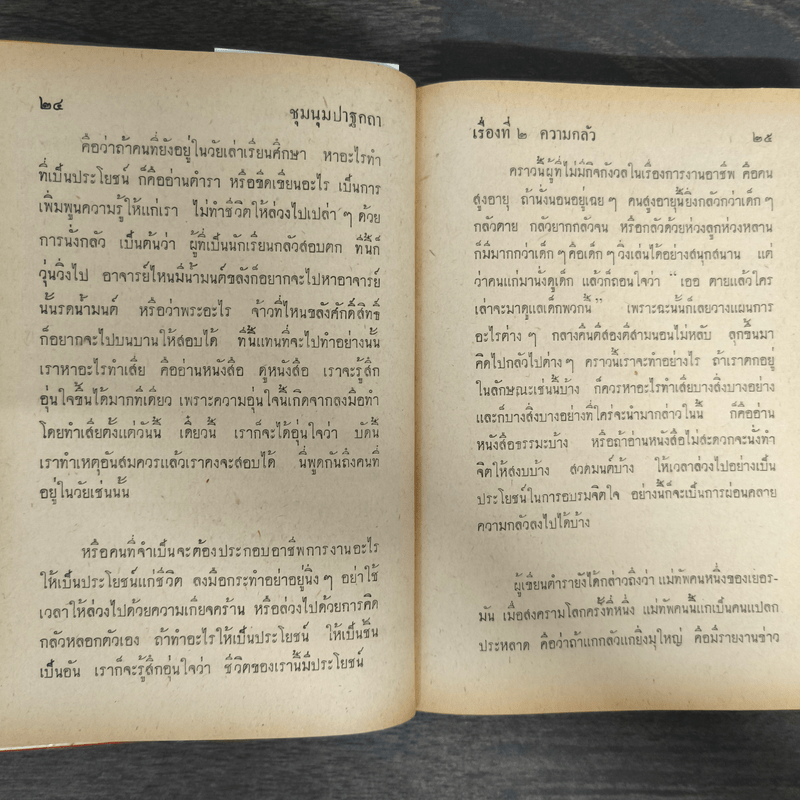 ๒๔
ชุมนุมปาฐกถา
คือว่าถ้าคนที่ยังอยู่ในวัยเล่าเรียนศึกษา หาอะไรทำ
ที่เป็นประโยชน์ ก็คืออ่านตำรา หรือขีดเขียนอะไร เป็นการ
เพิ่มพูนความรู้ให้แก่เรา ไม่ทำชีวิตให้ล่วงไปเปล่า ๆ ด้วย
การนั่งกลัว เป็นต้นว่า ผู้ที่เป็นนักเรียนกลัวสอบตก ทีนี้ก็
วุ่นวิ่งไป อาจารย์ไหนมีน้ำมนต์ขลังก็อยากจะไปหาอาจารย์
นั้นรดน้ำมนต์ หรือว่าพระอะไร จ้าวที่ไหนขลังศักดิ์สิทธิ์
ก็อยากจะไปบนบานให้สอบได้ ทีนี้แทนที่จะไปทำอย่างนั้น
เราหาอะไรทำเสีย คืออ่านหนังสือ ดูหนังสือ เราจะรู้สึก
อุ่นใจขึ้นได้มากทีเดียว เพราะความอุ่นใจนี้เกิดจากลงมือทำ
โดยทำเสียตั้งแต่วันนี้ เดี๋ยวนี้ เราก็จะได้อุ่นใจว่า บัดนี้
เราทำเหตุอันสมควรแล้วเราคงจะสอบได้ นี่พูดกันถึงคนที่
อยู่ในวัยเช่นนั้น
หรือคนที่จำเป็นจะต้องประกอบอาชีพการงานอะไร
ให้เป็นประโยชน์แก่ชีวิต ลงมือกระทำอย่าอยู่นิ่ง ๆ อย่าใช้
เวลาให้ล่วงไปด้วยความเกียจคร้าน หรือล่วงไปด้วยการคิด
กลัวหลอกตัวเอง ถ้าทำอะไรให้เป็นประโยชน์ ให้เป็นชิ้น
เป็นอัน เราก็จะรู้สึกอุ่นใจว่า ชีวิตของเรานี้มีประโยชน์
เรื่องที่ ๒ ความกลัว
๒๕
คราวนี้ผู้ที่ไม่มีกิจกังวลในเรื่องการงานอาชีพ คือคน
สูงอายุ ถ้านั่งนอนอยู่เฉย ๆ คนสูงอายุนี้ยิ่งกลัวกว่าเด็ก ๆ
กลัวตาย กลัวยากกลัวจน หรือกลัวด้วยห่วงลูกห่วงหลาน
ก็มีมากกว่าเด็ก ๆ คือเด็ก ๆ วิ่งเล่นได้อย่างสนุกสนาน แต่
ว่าคนแก่มานั่งดูเด็ก แล้วก็ถอนใจว่า “เออ ตายแล้วใคร
เล่าจะมาดูแลเด็กพวกนี้” เพราะฉะนั้นก็เลยวางแผนการ
อะไรต่าง ๆ กลางคืนตีสองตีสามนอนไม่หลับ ลุกขึ้นมา
คิดไปกลัวไปต่าง ๆ คราวนี้เราจะทำอย่างไร ถ้าเราตกอยู่
ในลักษณะเช่นนี้บ้าง ก็ควรหาอะไรทำเสียบางสิ่งบางอย่าง
และก็บางสิ่งบางอย่างที่ใคร่จะนำมากล่าวในนี้ ก็คืออ่าน
หนังสือธรรมะบ้าง หรือถ้าอ่านหนังสือไม่สะดวกจะนั่งทำ
จิตให้สงบบ้าง สวดมนต์บ้าง ให้เวลาล่วงไปอย่างเป็น
ประโยชน์ในการอบรมจิตใจ อย่างนี้ก็จะเป็นการผ่อนคลาย
ความกลัวลงไปได้บ้าง
ผู้เขียนตำรายังได้กล่าวถึงว่า แม่ทัพคนหนึ่งของเยอร-
มัน เมื่อสงครามโลกครั้งที่หนึ่ง แม่ทัพคนนี้แกเป็นคนแปลก
ประหลาด คือว่าถ้าแกกลัวแกยิ่งมุใหญ่ คือมีรายงานข่าว